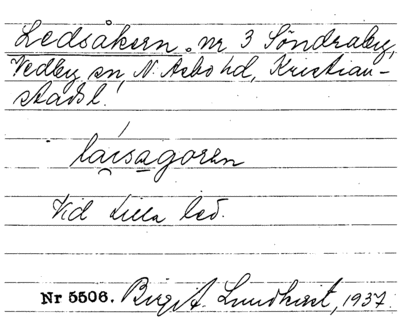 Ledsåkern. nr 3 Söndraby,
Vedby sn, N. Åsbo hd, Kristian-
stads l.
láisagoren
Vid Lilla led.
Nr 5506. Birgit Lundkvist, 1937.